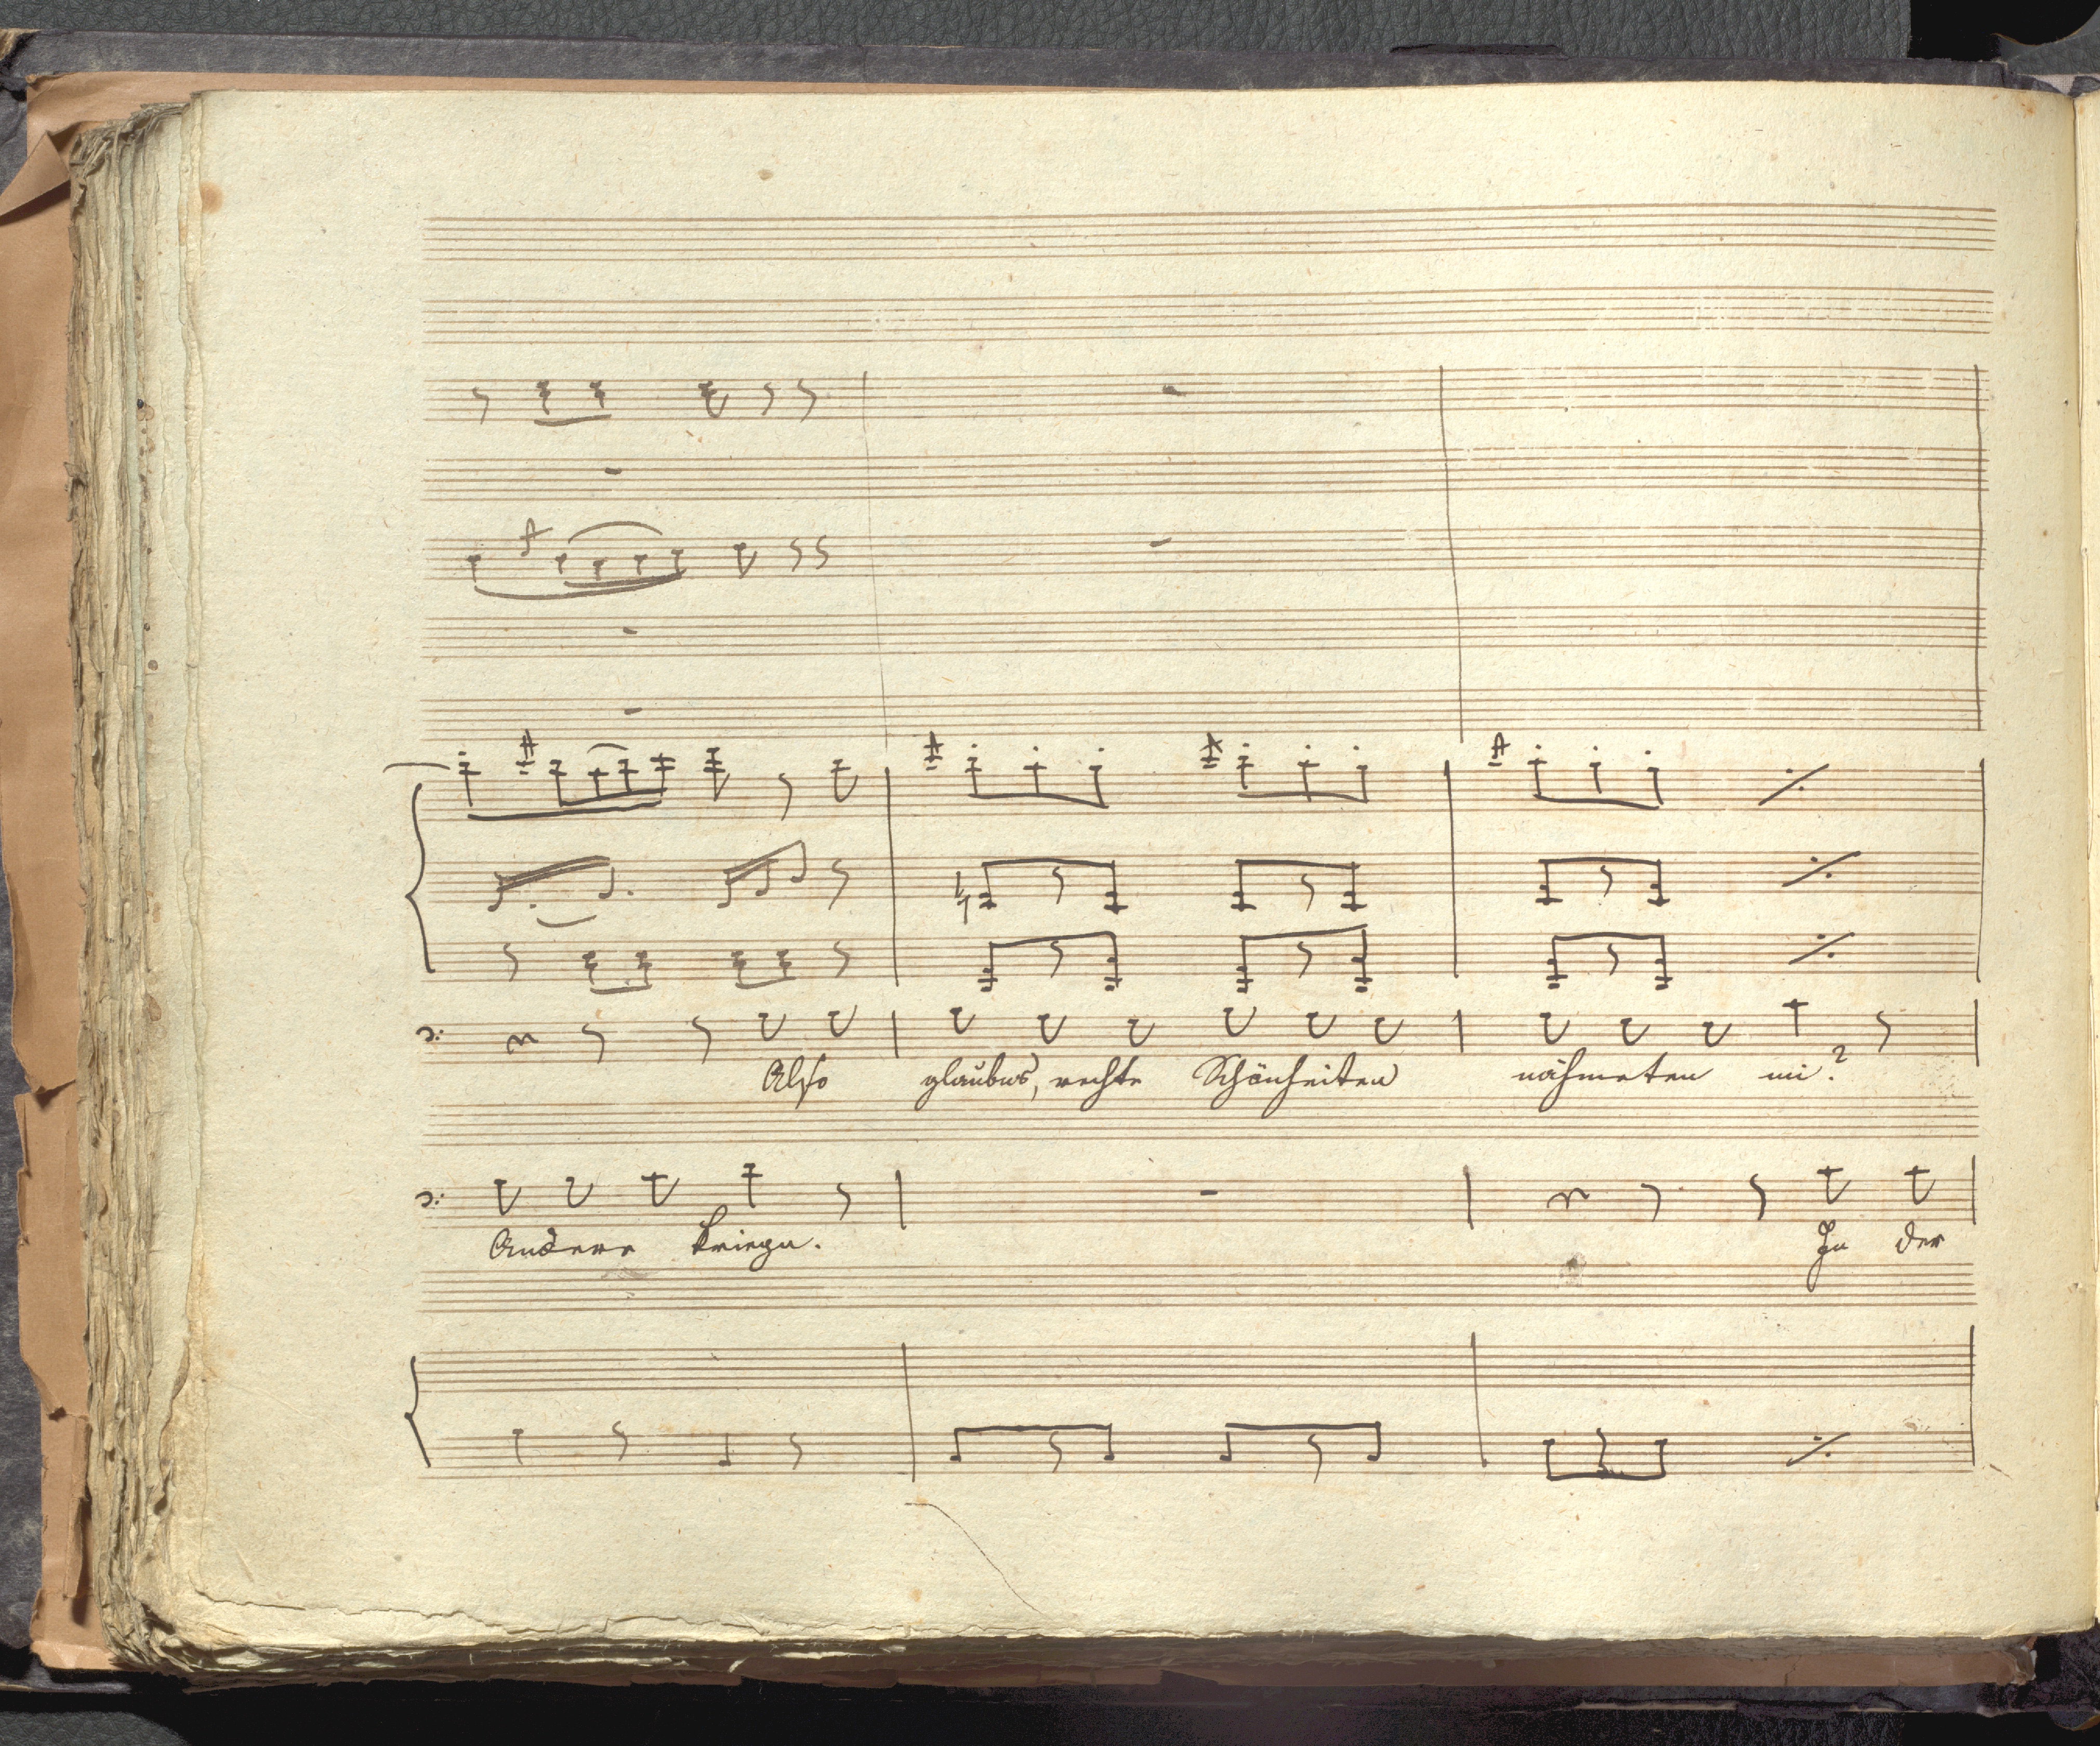 Also glaubns, rechte Schönheiten nähmeten mi?
Andere kriegn. Ja der